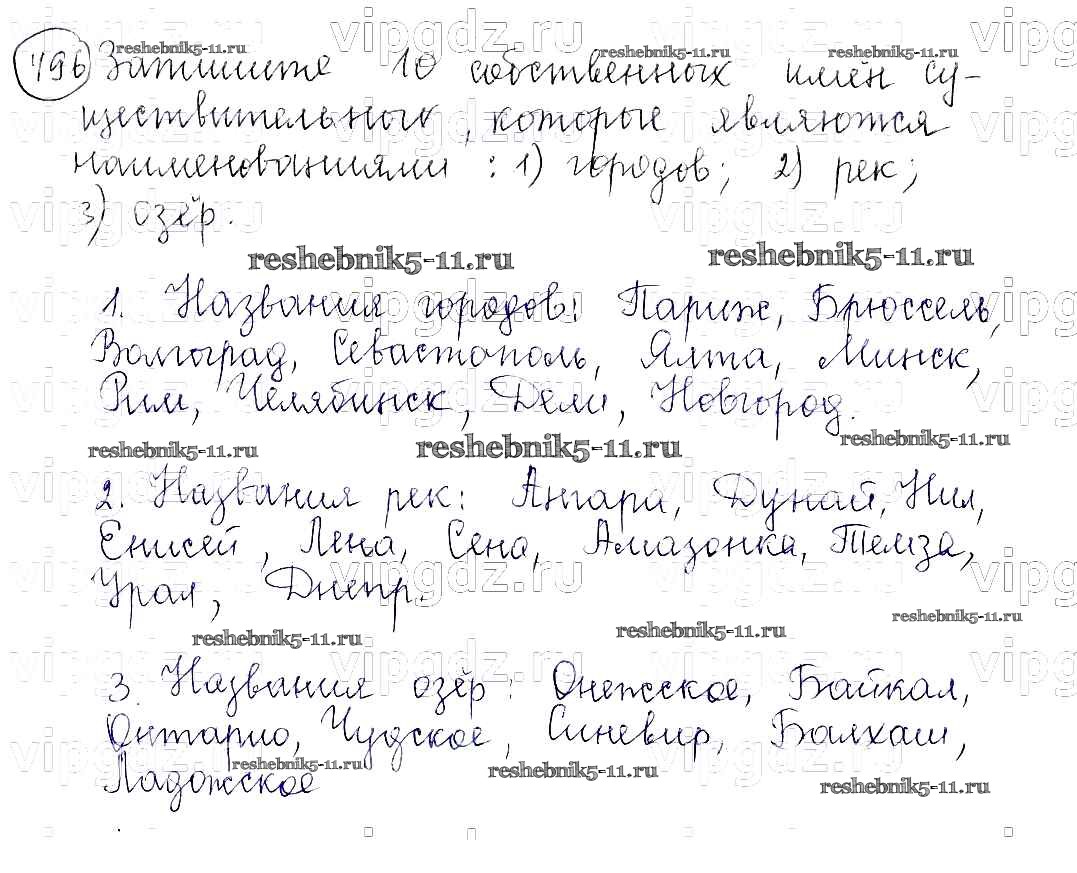 496 Запишите 10 собственных имён су-
ществительных, которые являются
наименованиями: 1) городов; 2) рек;
3) озёр.
reshebnik5-11.ru
1. Названия городов: Париж, Брюссель,
Волгоград, Севастополь, Ялта, Минск,
Рим, Челябинск, Дели, Новгород.
reshebnik5-11.ru
2. Названия рек: Ангара, Дунай, Нил,
Енисей, Лена, Сена, Амазонка, Темза,
Урал, Днепр.
reshebnik5-11.ru
3. Названия озёр: Онежское, Байкал,
Онтарио, Чудское, Синевир, Балхаш,
Ладожское
reshebnik5-11.ru
vipgdz.ru